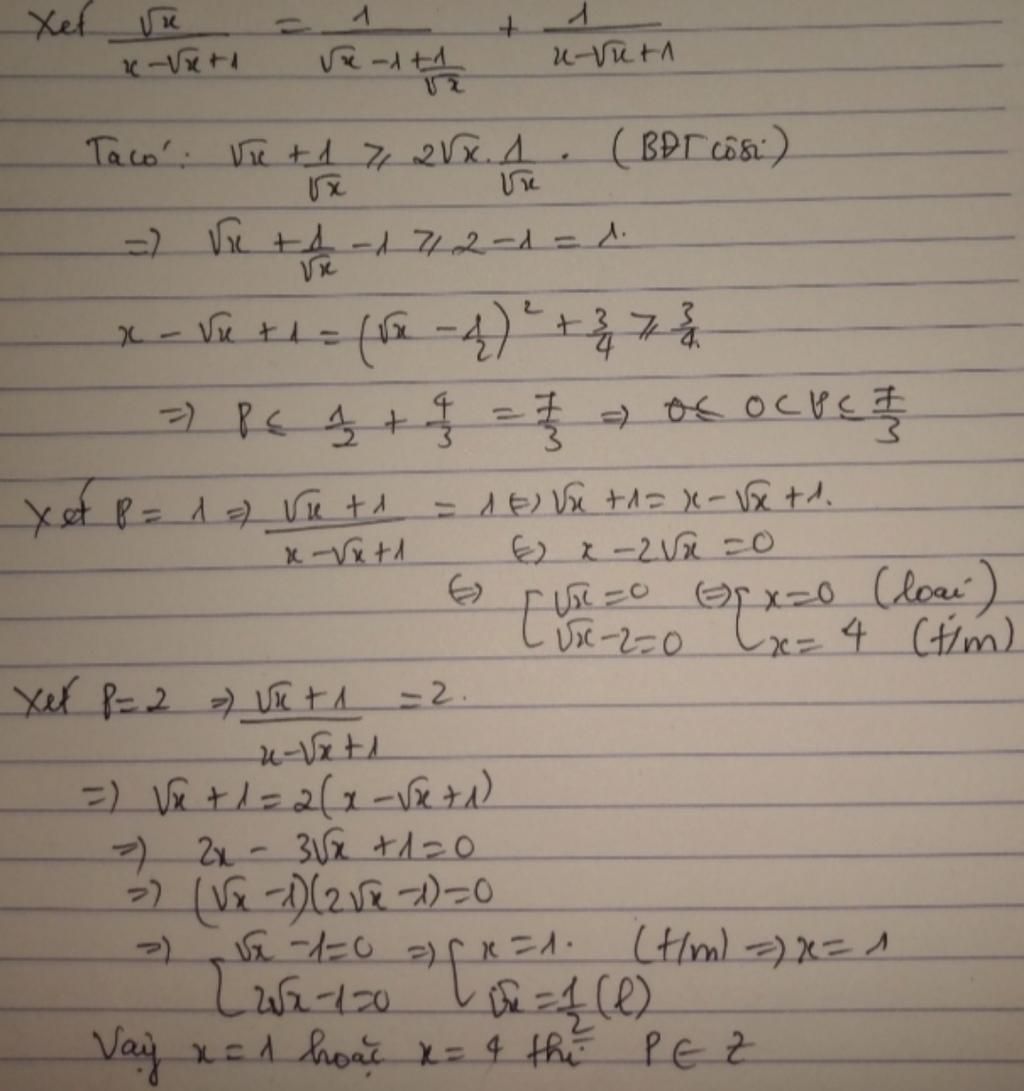 Xét √x/(x-√x+1) = 1/(√x-1+1/√x) + 1/(x-√x+1)
Ta có: √x + 1/√x ≥ 2√x.1/√x. (BĐT côsi)
=> √x + 1/√x - 1 ≥ 2 - 1 = 1.
x - √x + 1 = (√x - 1/2)² + 3/4 ≥ 3/4.
=> P ≤ 1/2 + 4/3 = 7/3 => 0≤ 0<P≤ 7/3
Xét P = 1 => (√x + 1)/(x-√x+1) = 1 <=> √x + 1 = x - √x + 1.
<=> x - 2√x = 0
<=> [√x = 0 <=> [x = 0 (loại)
√x - 2 = 0 x = 4 (t/m)
Xét P = 2 => (√x + 1)/(x-√x+1) = 2.
=> √x + 1 = 2(x - √x + 1)
=> 2x - 3√x + 1 = 0
=> (√x - 1)(2√x - 1) = 0
=> [√x - 1 = 0 => [x = 1. (t/m) => x = 1
2√x - 1 = 0 √x = 1/2 (l)
Vậy x = 1 hoặc x = 4 thì P ∈ Z